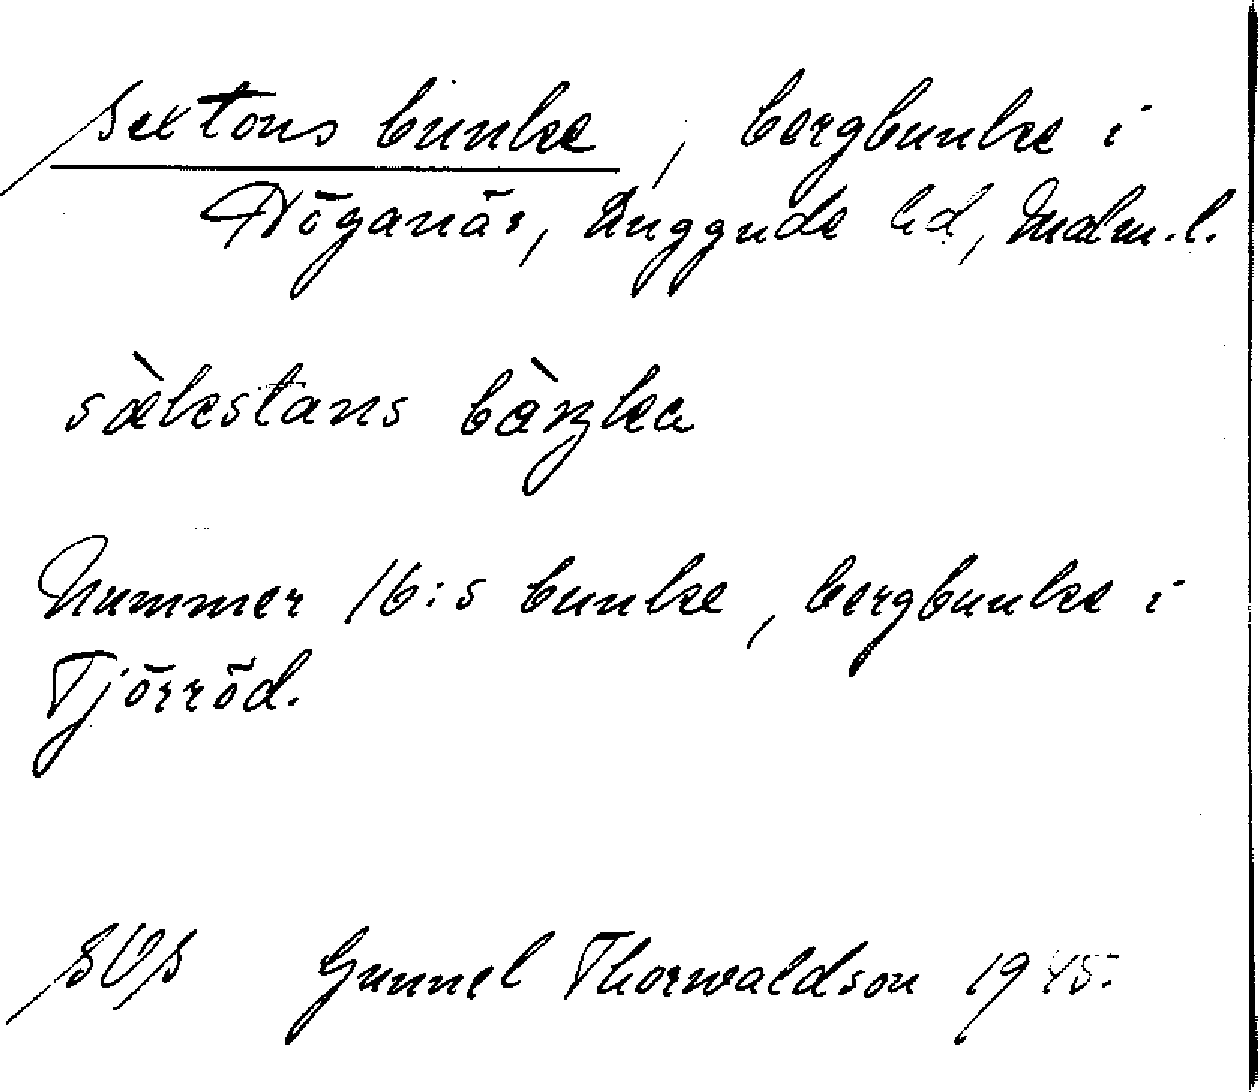 Sextons bunke, bergbunke i
Höganäs, Luggude hd, Malm.l.
sàkstans bàŋka
Nummer 16:s bunke, bergbunke i
Tjörröd.
SOS Gunnel Thorwaldson 1945.